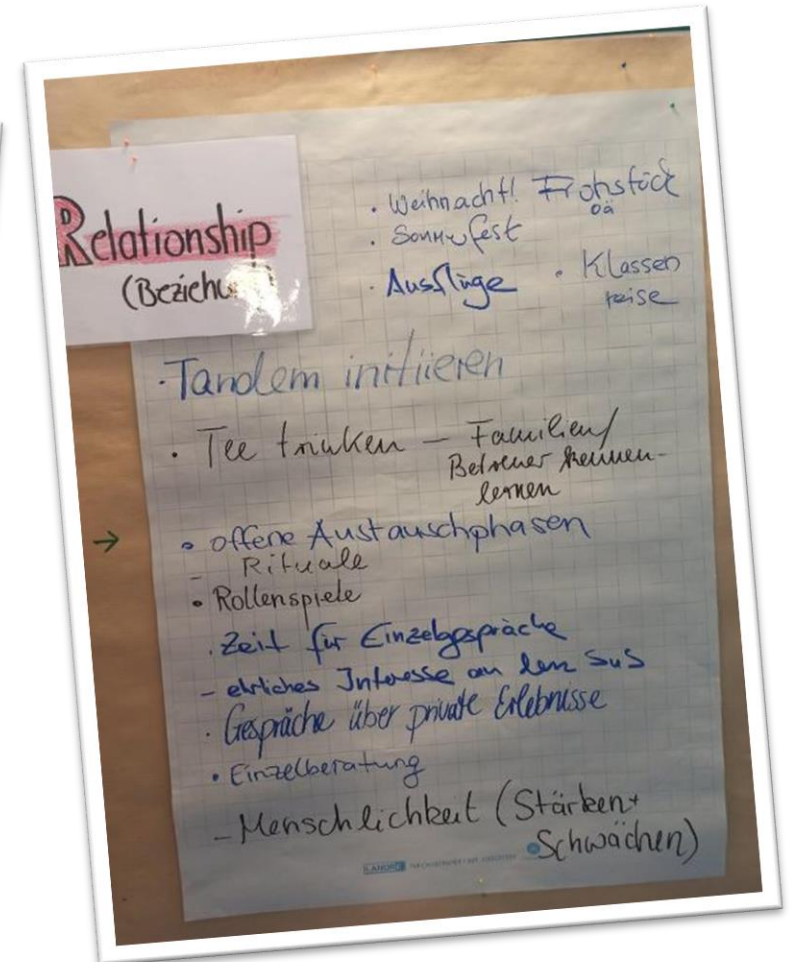 Relationship
(Beziehu
· Weihnacht! Frühstück
oä
· Sommerfest
· Ausflüge · Klassen
reise
· Tandem initiieren
· Tee trinken – Familien/
Betreuer kennen-
lernen
→ • offene Austauschphasen
– Rituale
• Rollenspiele
· Zeit für Einzelgespräche
– ehrliches Interesse an den SuS
· Gespräche über private Erlebnisse
• Einzelberatung
– Menschlichkeit (Stärken+
Schwächen)